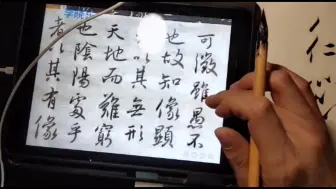 可徵雖愚不
也故知像顯
以其無形
天地而難窮
也陰陽處乎
者以其有像